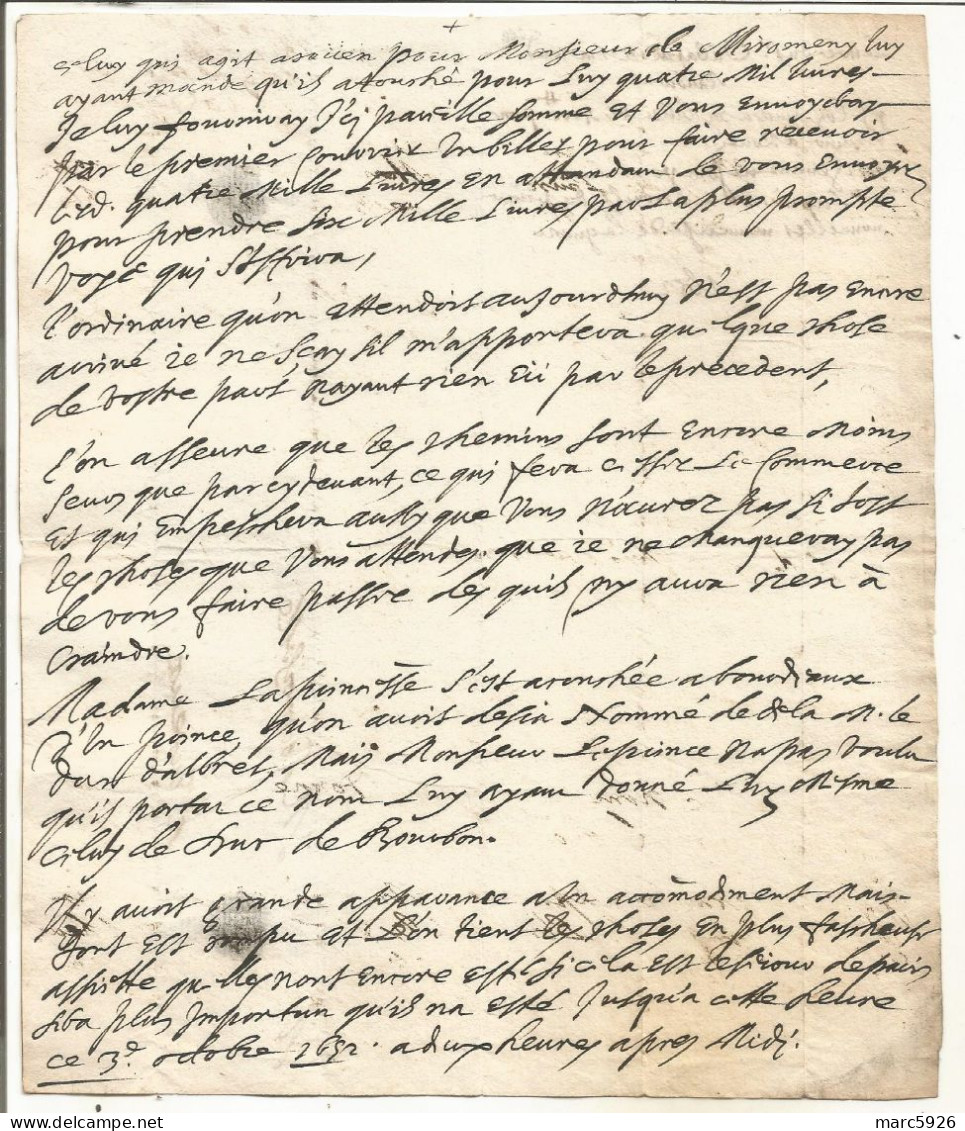 +
celuy qui agit a rouen pour Monsieur de Miromeny luy
ayant mandé qu'il a touché pour Luy quatre Mil livres
Je luy fourniray Icy pareille somme Et vous Envoyeray
par le premier Courrier Un billet pour faire recevoir
quatre Mille Livres En attendant de vous Envoyer
pour prendre six Mille Livres par La plus prompte
voye qui s'offrira,
L'ordinaire qu'on attendoit aujourdhuy n'est pas Encore
arrivé ie ne sçay s'il m'apportera quelque chose
de vostre part, Nayant rien Eü par le precedent,
L'on asseure que les chemins sont Encore Moins
seurs que par cydevant, ce qui fera cesser Le Commerce
Et qui Empeschera aussy que Vous N'aurez pas si tost
les choses que Vous attendes. que ie ne manqueray pas
de vous faire passer des qu'il ny aura rien à
Craindre.
Madame La princesse s'est acouchée a bourdeaux
d'Un prince, qu'on avoit desia Nommé de dela M. le
duc d'albret, Mais Monsieur Le prince Na pas voulu
qu'il portat ce nom Luy ayant donné Luy Mesme
Celuy de Duc de Bourbon.
Il y avoit grande apparance a Un accõmodement Mais
tout Est rompu Et L'on tient les choses En plus fascheuse
assiette qu'elles nont Encore esté si cela Est le seiour de paris
sera plus Importun qu'il na esté Jusqu'a cette heure
ce 3.e octobre 1652. a deux heures apres Midj.
marc5926